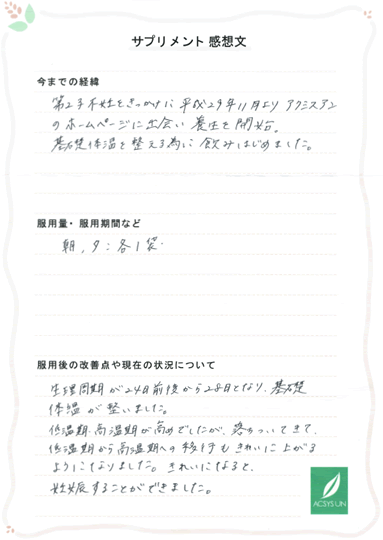 サプリメント 感想文
今までの経緯
第2子不妊をきっかけに 平成29年11月より アクシスアン
のホームページに出会い 養生を開始。
基礎体温を整える為に 飲みはじめました。
服用量・服用期間など
朝，夕：各1袋．
服用後の改善点や現在の状況について
生理周期が24日前後から28日となり、基礎
体温が整いました。
低温期、高温期が高めでしたが、落ちついてきて、
低温期から高温期への移行もきれいに上がる
ようになりました。きれいになると、
妊娠することができました。
ACSYS UN